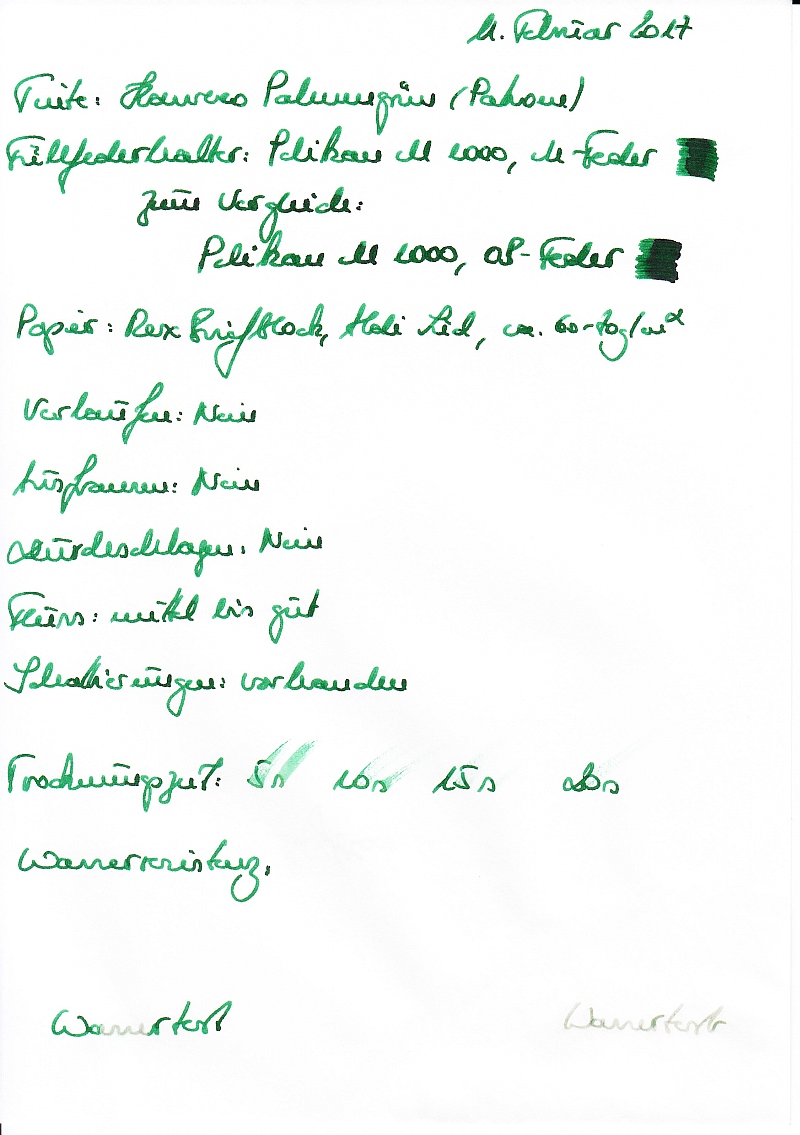 11. Februar 2017
Tinte: Palmengrün (Patrone)
Füllfederhalter: Pelikan M 1000, M-Feder
zum Vergleich:
Pelikan M 1000, OB-Feder
Papier: Rex Briefblock, Aldi Süd, ca. 60-70g/m²
Verlaufen: Nein
Ausfransen: Nein
Durchschlagen: Nein
Fluss: mittel bis gut
Schattierungen: vorhanden
Trocknungszeit: 5s 10s 15s 20s
Wasserresistenz:
Wassertest Wassertest